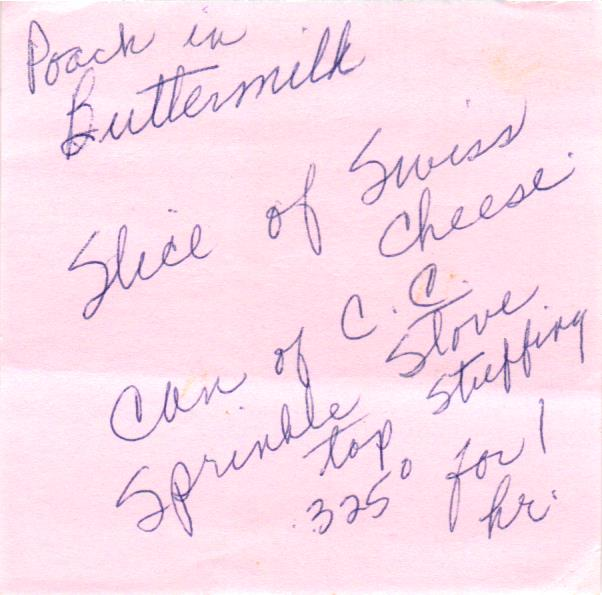 Poach in
Buttermilk
Slice of Swiss
Cheese.
Can of C.C.
Sprinkle Stove
top Stuffing
325° for 1
hr.